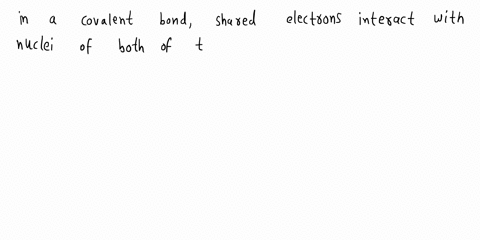 in a covalent bond, shared electrons interact with
nuclei of both of t